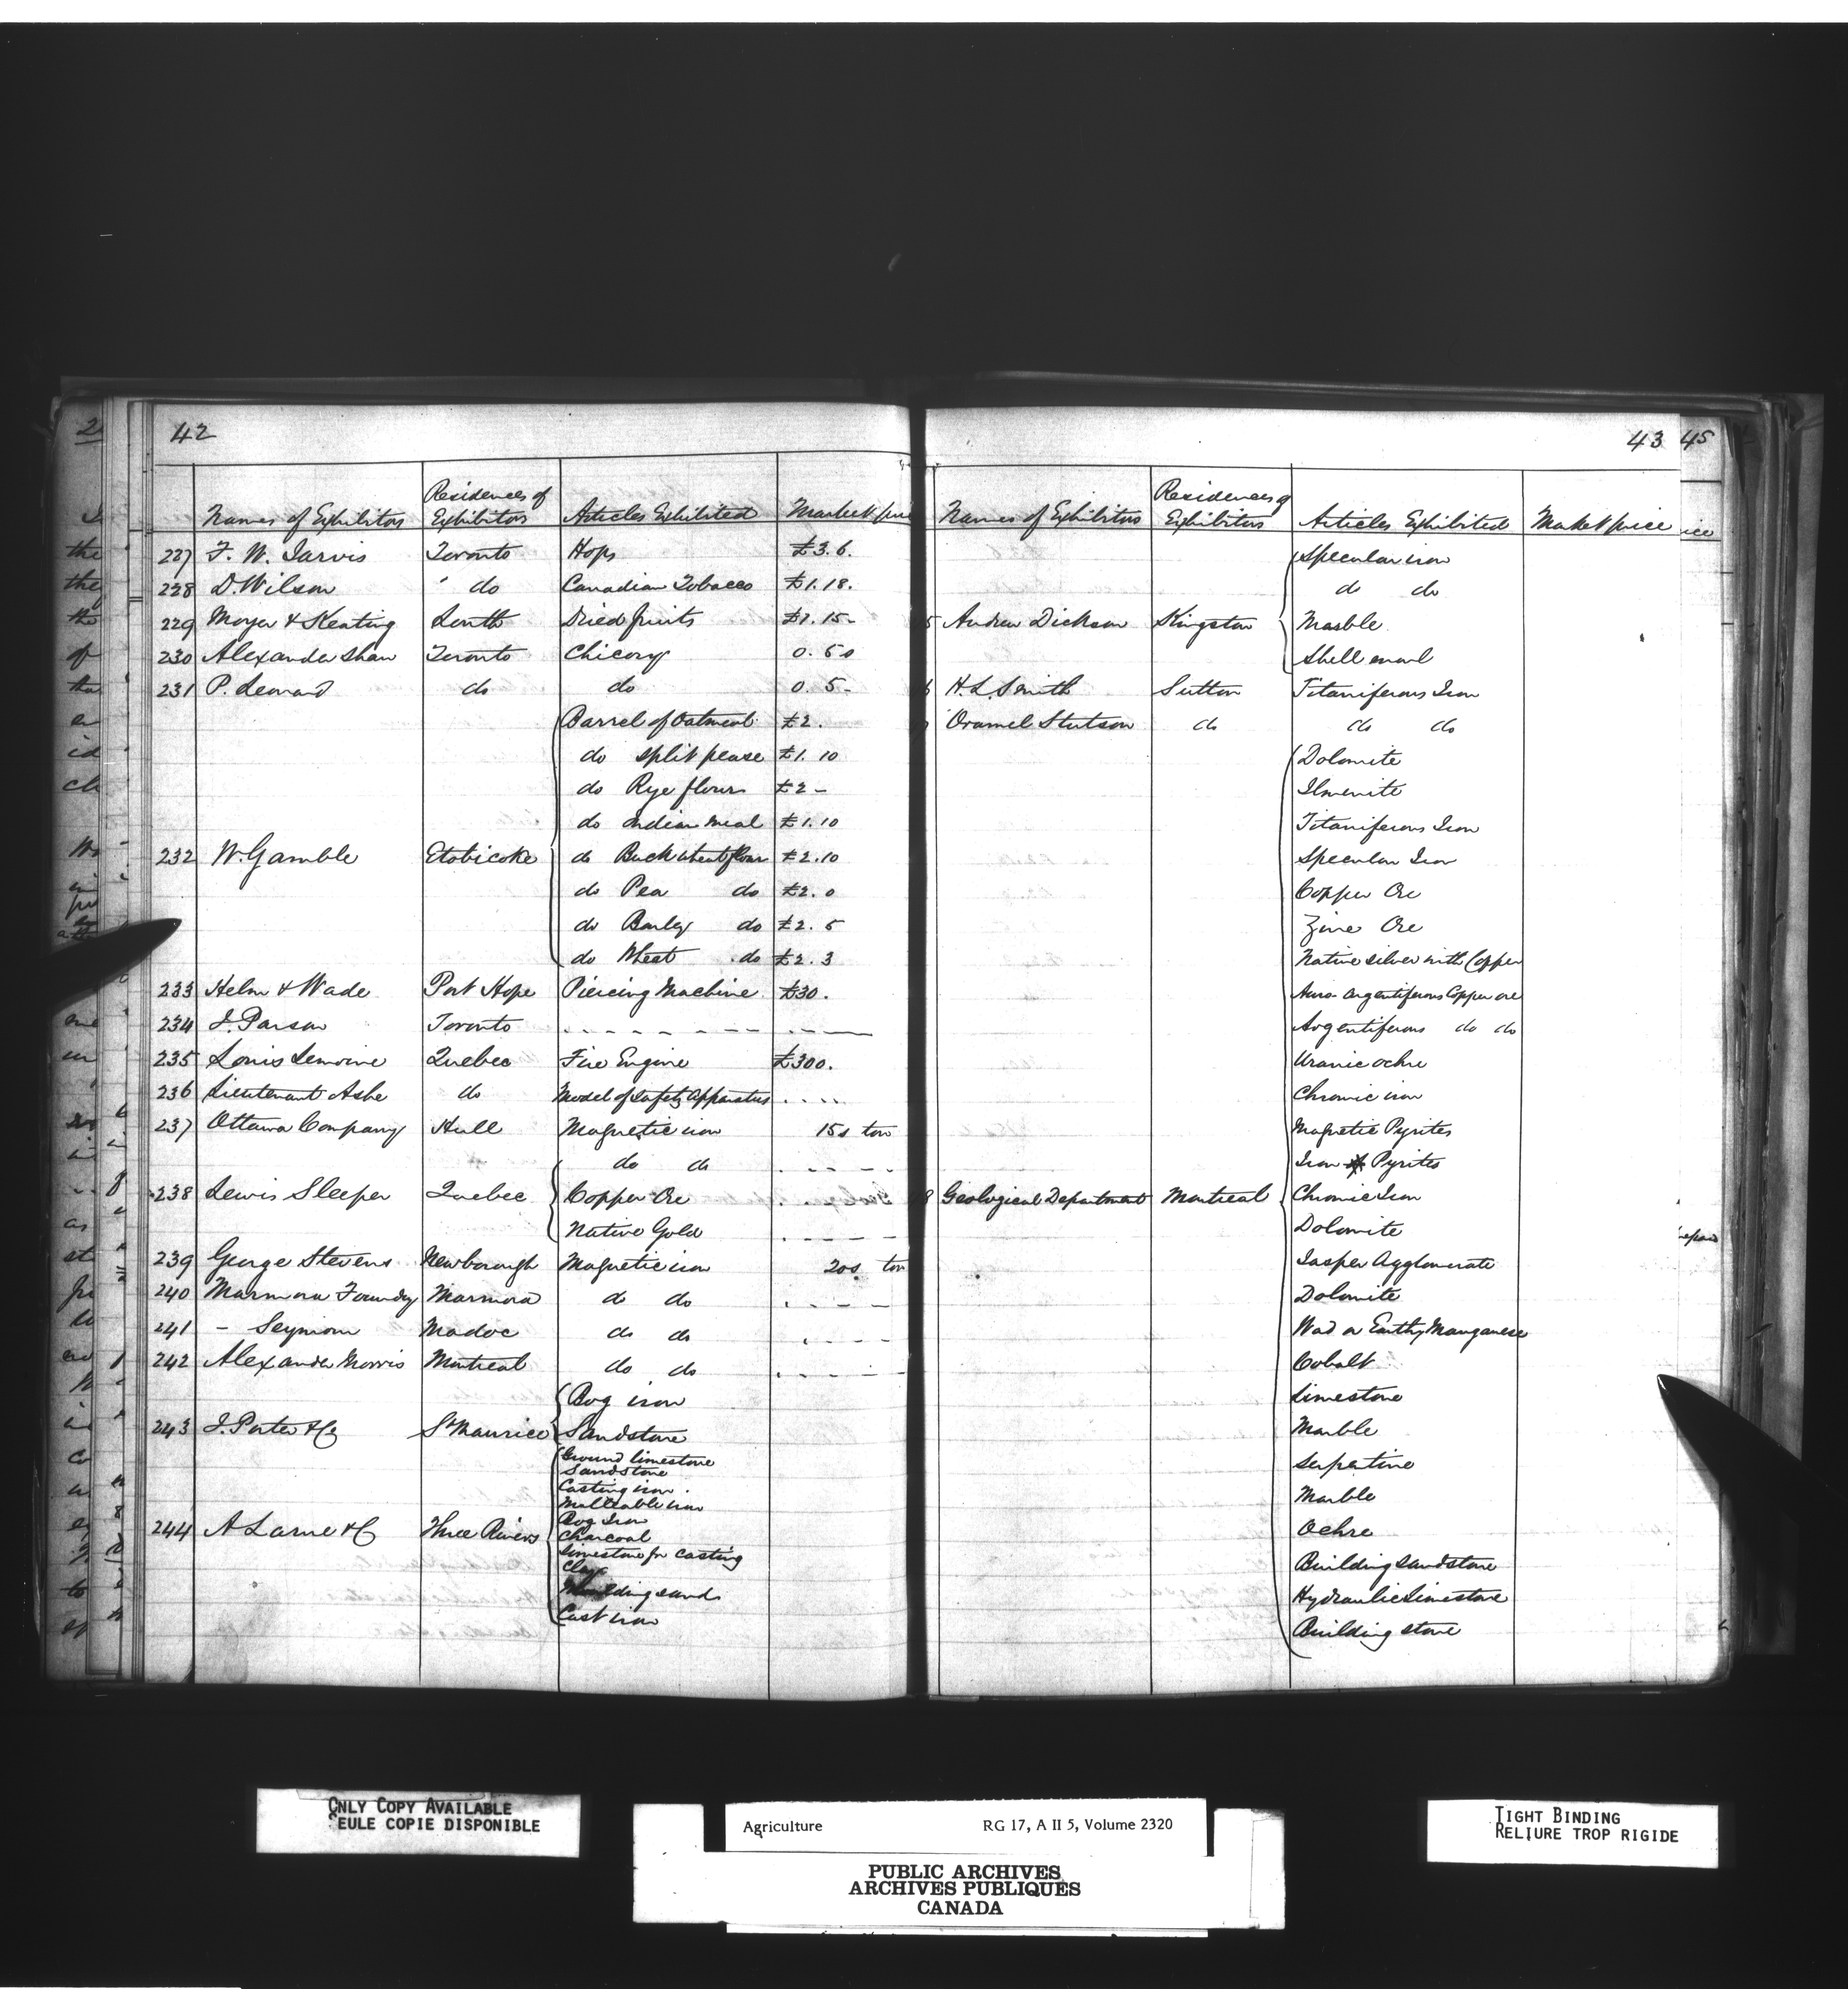 42
Names of Exhibitors | Residences of Exhibitors | Articles Exhibited | Market pri
227 F. W. Jarvis | Toronto | Hops | £3.6.
228 D. Wilson | do | Canadian Tobacco | £1.18.
229 Moyer & Keating | Louth | Dried fruits | £1.15-
230 Alexander Shaw | Toronto | Chicory | 0.50
231 P. Lenard | do | do | 0.5-
Barrel of Oatmeal | £2.
do split pease | £1.10
do Rye flour | £2-
do Indian meal | £1.10
232 W. Gamble | Etobicoke | do Buckwheat flour | £2.10
do Pea do | £2.0
do Barley do | £2.5
do Wheat do | £2.3
233 Helm & Wade | Port Hope | Piercing Machine | £30.
234 J. Parson | Toronto
235 Louis Lemoine | Quebec | Fire Engine | £300.
236 Lieutenant Ashe | do | Model of safety apparatus
237 Ottawa Company | Hull | Magnetic iron | 15s ton
do do
238 Lewis Sleeper | Quebec | Copper Ore
Native Gold
239 George Stevens | Newborough | Magnetic iron | 20s. ton
240 Marmora Foundry | Marmora | do do
241 - Seymour | Madoc | do do
242 Alexander Morris | Montreal | do do
Bog iron
243 J. Porter & Co | St Maurice | Sandstone
Ground limestone
Sandstone
Casting iron.
Malleable iron
Bog Iron
244 A Larue & C | Three Rivers | Charcoal
Limestone for casting
Clay
Moulding sand
Cast iron
43
45
Names of Exhibitors | Residences of Exhibitors | Articles Exhibited | Maket price
ice
Specular iron
do do
5 Andrew Dickson | Kingston | Marble
Shell marl
6 H. L. Smith | Sutton | Titaniferous Iron
Oramel Stutson | do | do do
Dolomite
Ilmenite
Titaniferous Iron
Specular Iron
Copper Ore
Zinc Ore
Native silver with Copper
Auro-argentiferous Copper ore
Argentiferous do do
Uranic ochre
Chromic iron
Magnetic Pyrites
Iron Pyrites
8 Geological Department | Montreal | Chromic Iron
Dolomite
Jasper Agglomerate
Dolomite
Wad or Earthy Manganese
Cobalt
Limestone
Marble
Serpentine
Marble
Ochre
Building sandstone
Hydraulic limestone
Building stone
ONLY COPY AVAILABLE
SEULE COPIE DISPONIBLE
Agriculture RG 17, A II 5, Volume 2320
PUBLIC ARCHIVES
ARCHIVES PUBLIQUES
CANADA
TIGHT BINDING
RELIURE TROP RIGIDE